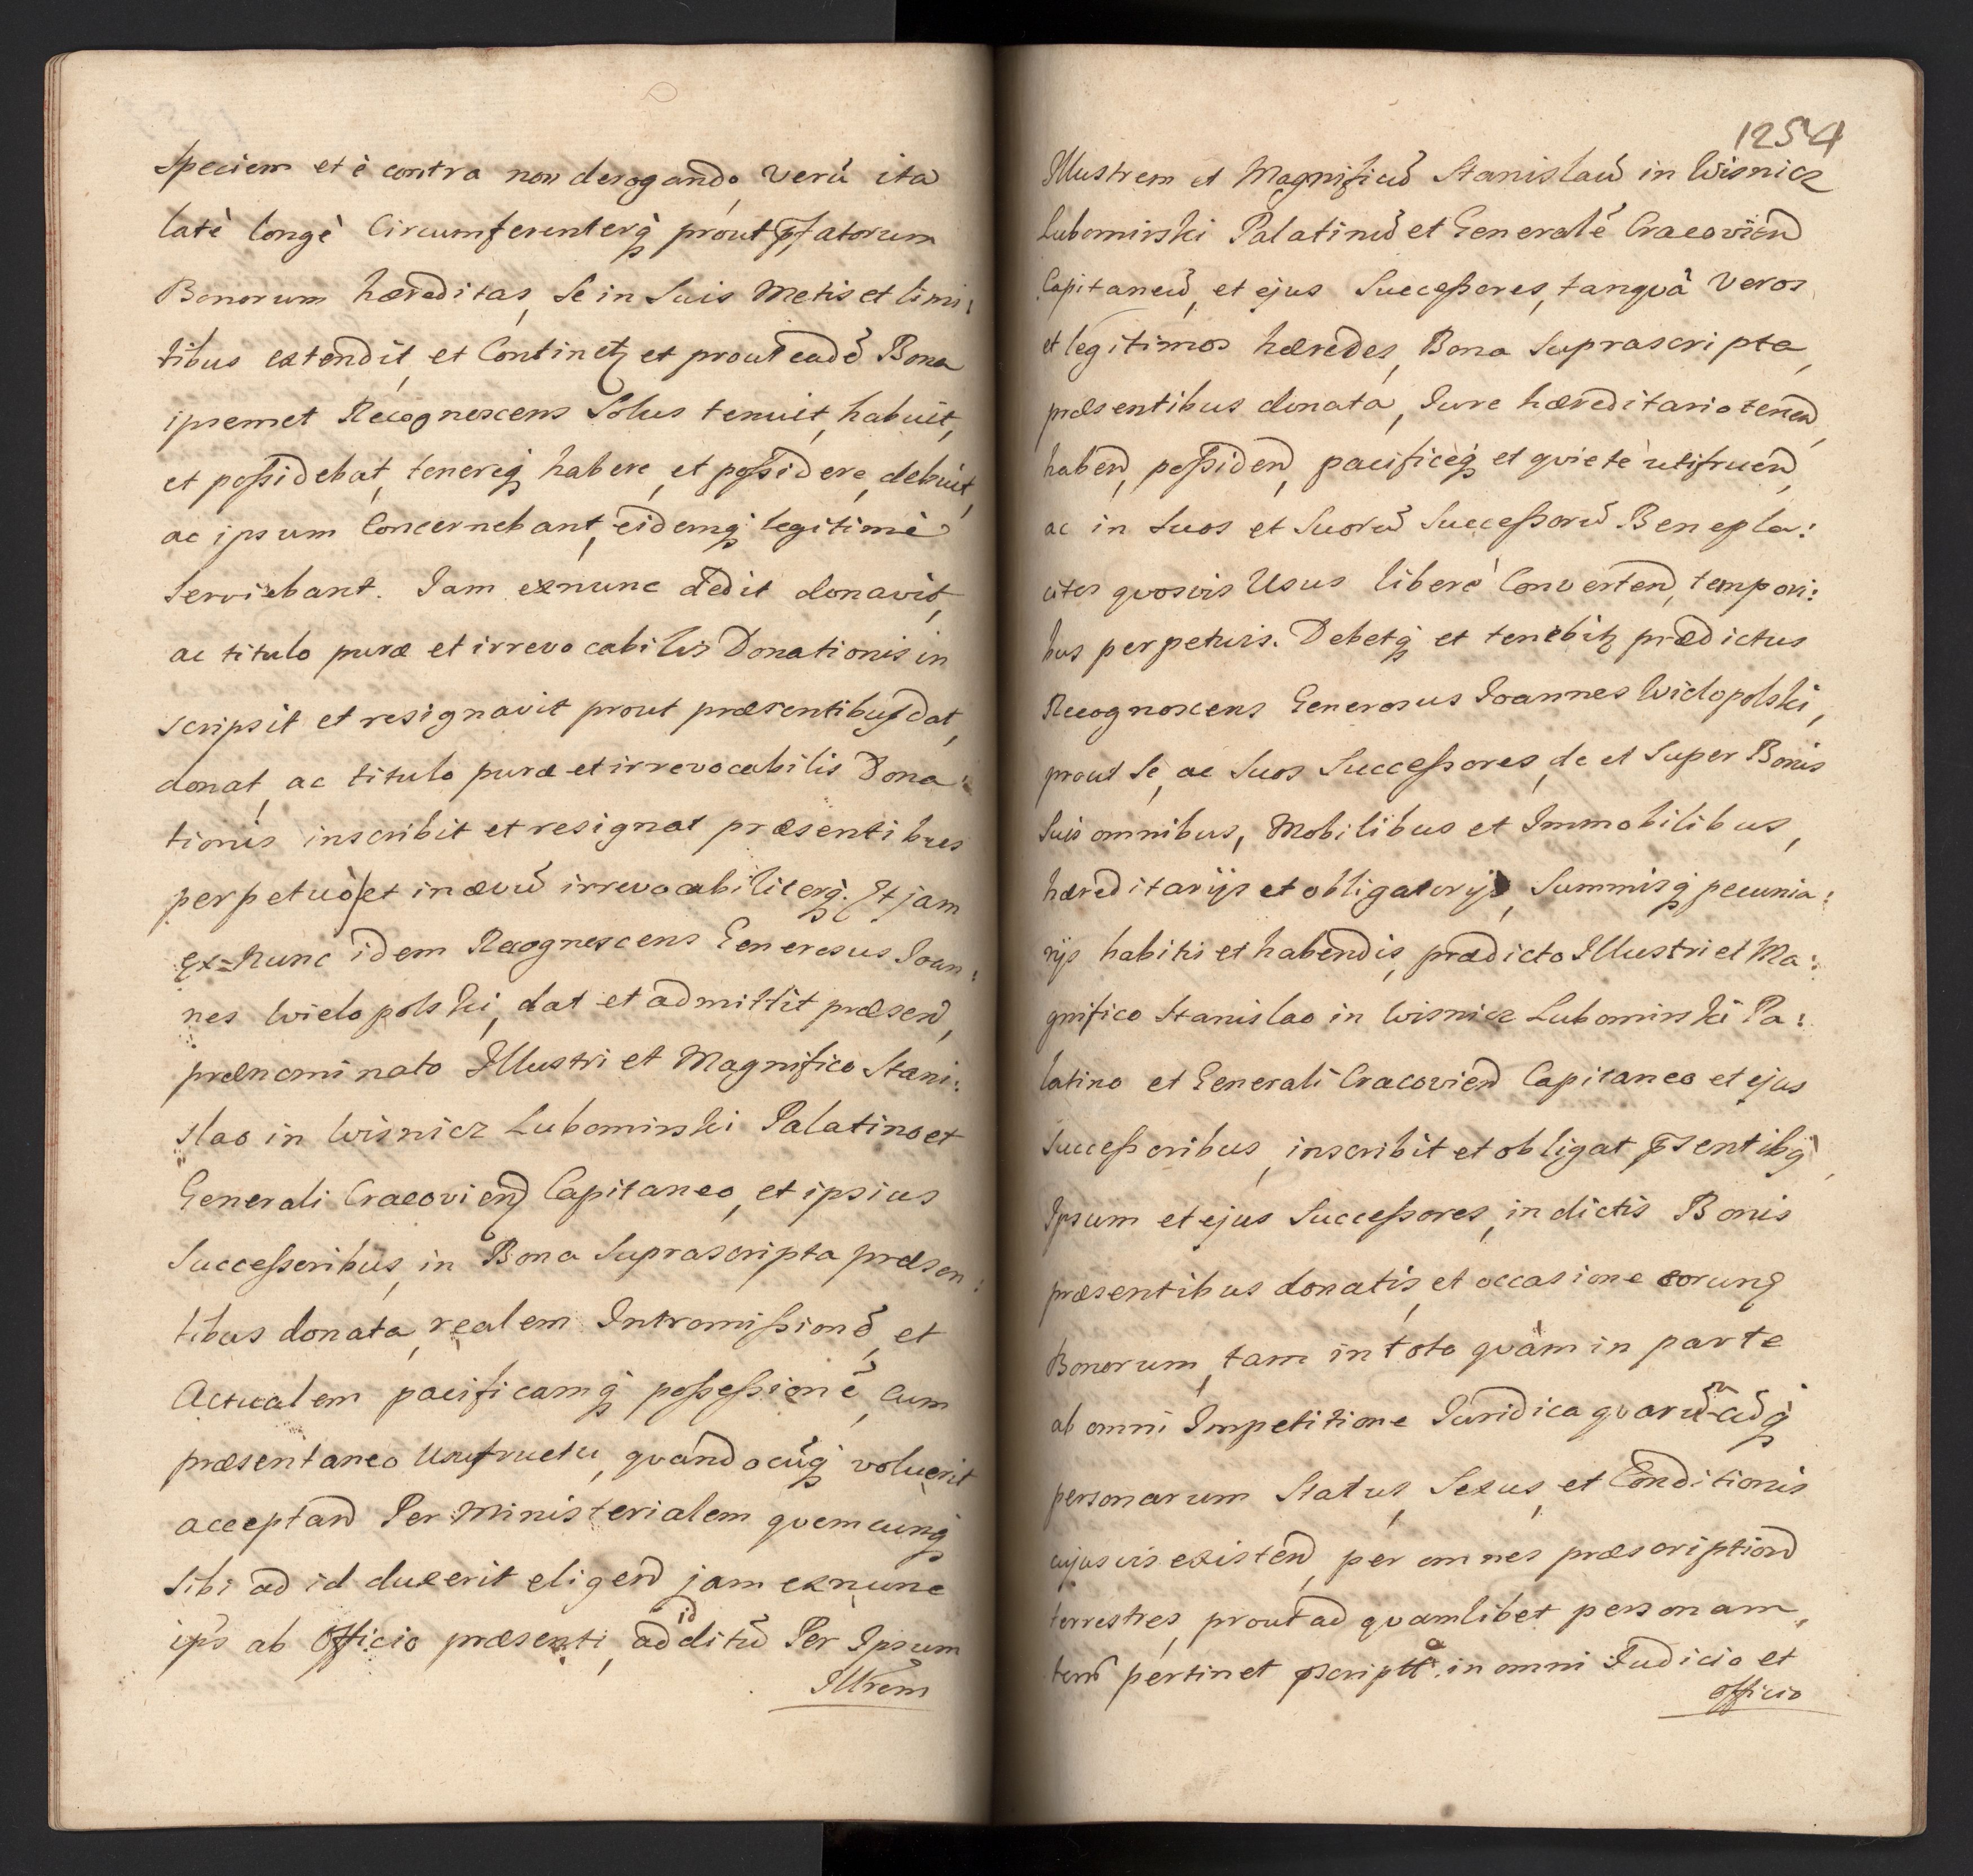 Speciem et è contra non derogando, verũ ita
latè longè Circumferenterq̃ prout p̃fatorum
Bonorum hæreditas, Se in Suis Metis et limi:
tibus extendit, et Continetꝫ et prout eadẽ Bona
ipsemet Recognoscens Solus tenuit, habuit,
et poſsidebat, tenereq̃ habere, et poſsidere, debuit,
ac ipsum Concernebant, eidemq̃ legitimè
Serviebant. Jam exnunc dedit donavit,
ac titulo puræ et irrevocabilis Donationis in
scripsit et resignavit prout præsentibus dat,
donat, ac titulo puræ et irrevocabilis Dona:
tionis inscribit et resignat præsentibus
perpetuò et in ævũ irrevocabiliterq̃. Et jam
Ex=Nunc idem Recognoscens Generosus Joan:
nes Wielopolski, dat et admittit præsen̄,
prænominato Illustri et Magnifico Stani:
slao in Wisnicz Lubomirski Palatino et
Generali Cracovien̄ Capitaneo, et ipsius
Succeſsoribus, in Bona Suprascripta præsen:
tibus donata, realem Intromiſsionẽ, et
Actualem pacificamq̃ poſseſsionẽ, cum
præsentaneo Usufructu, quandocũq̃ voluerit
acceptan̄ Per Ministerialem quemcunq̃
Sibi ad id duxerit eligen̄ jam exnunc
ip̃s ab Officio præsenti, ad id ditũ Per Ipsum
Illrem
1254
Illustrem et Magnificũ Stanislaũ in Wisnicz
Lubomirski Palatinũ et Generalẽ Cracovien̄
Capitaneũ, et ejus Succeſsores, tanquã Veros
et legitimos hæredes, Bona Suprascripta,
præsentibus donata, Jure hæreditario tenen̄,
haben̄, poſsiden̄, pacificeq̃ et quietè utifruen̄,
ac in Suos et Suorũ Succeſsorũ Benepla:
citos quosvis Usus liberè Converten̄, tempori:
bus perpetuis. Debetq̃ et tenebitꝫ prædictus
Recognoscens Generosus Joannes Wielopolski,
prout Se, ac Suos Succeſsores, de et Super Bonis
Suis omnibus, Mobilibus et Immobilibus,
hæreditarijs et obligatorijs, Summisq̃ pecunia:
rijs habitis et habendis, prædicto Illustri et Ma:
gnifico Stanislao in Wisnicz Lubomirski Pa:
latino et Generali Cracovien̄ Capitaneo et ejus
Succeſsoribus, inscribit et obligat p̃sentibq̃,
Ipsum et ejus Succeſsores, in dictis Bonis
præsentibus donatis, et occasione eorunḍ
Bonorum, tam in toto quàm in parte
ab omni Impetitione Juridica quarũcũq̃
personarum Status, Sexus, et Conditionis
cujusvis existen̄, per omnes præscription̄
terrestres, prout ad quamlibet personam,
ten̄ pertinet p̃scripta in omni Judicio et
officio